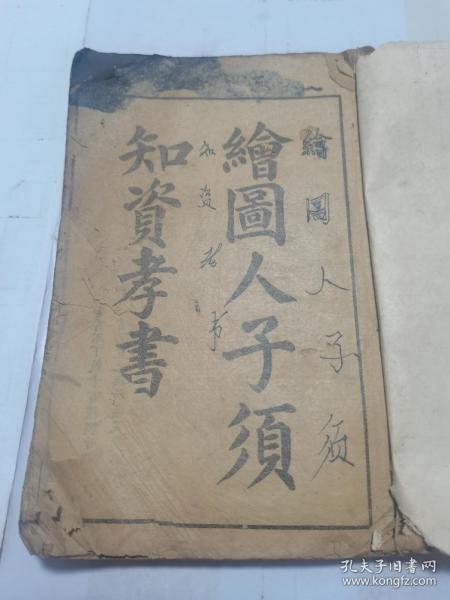 繪圖人子須
繪圖人子須
知資孝書
知資孝书
孔夫子旧书网
www.kongfz.com